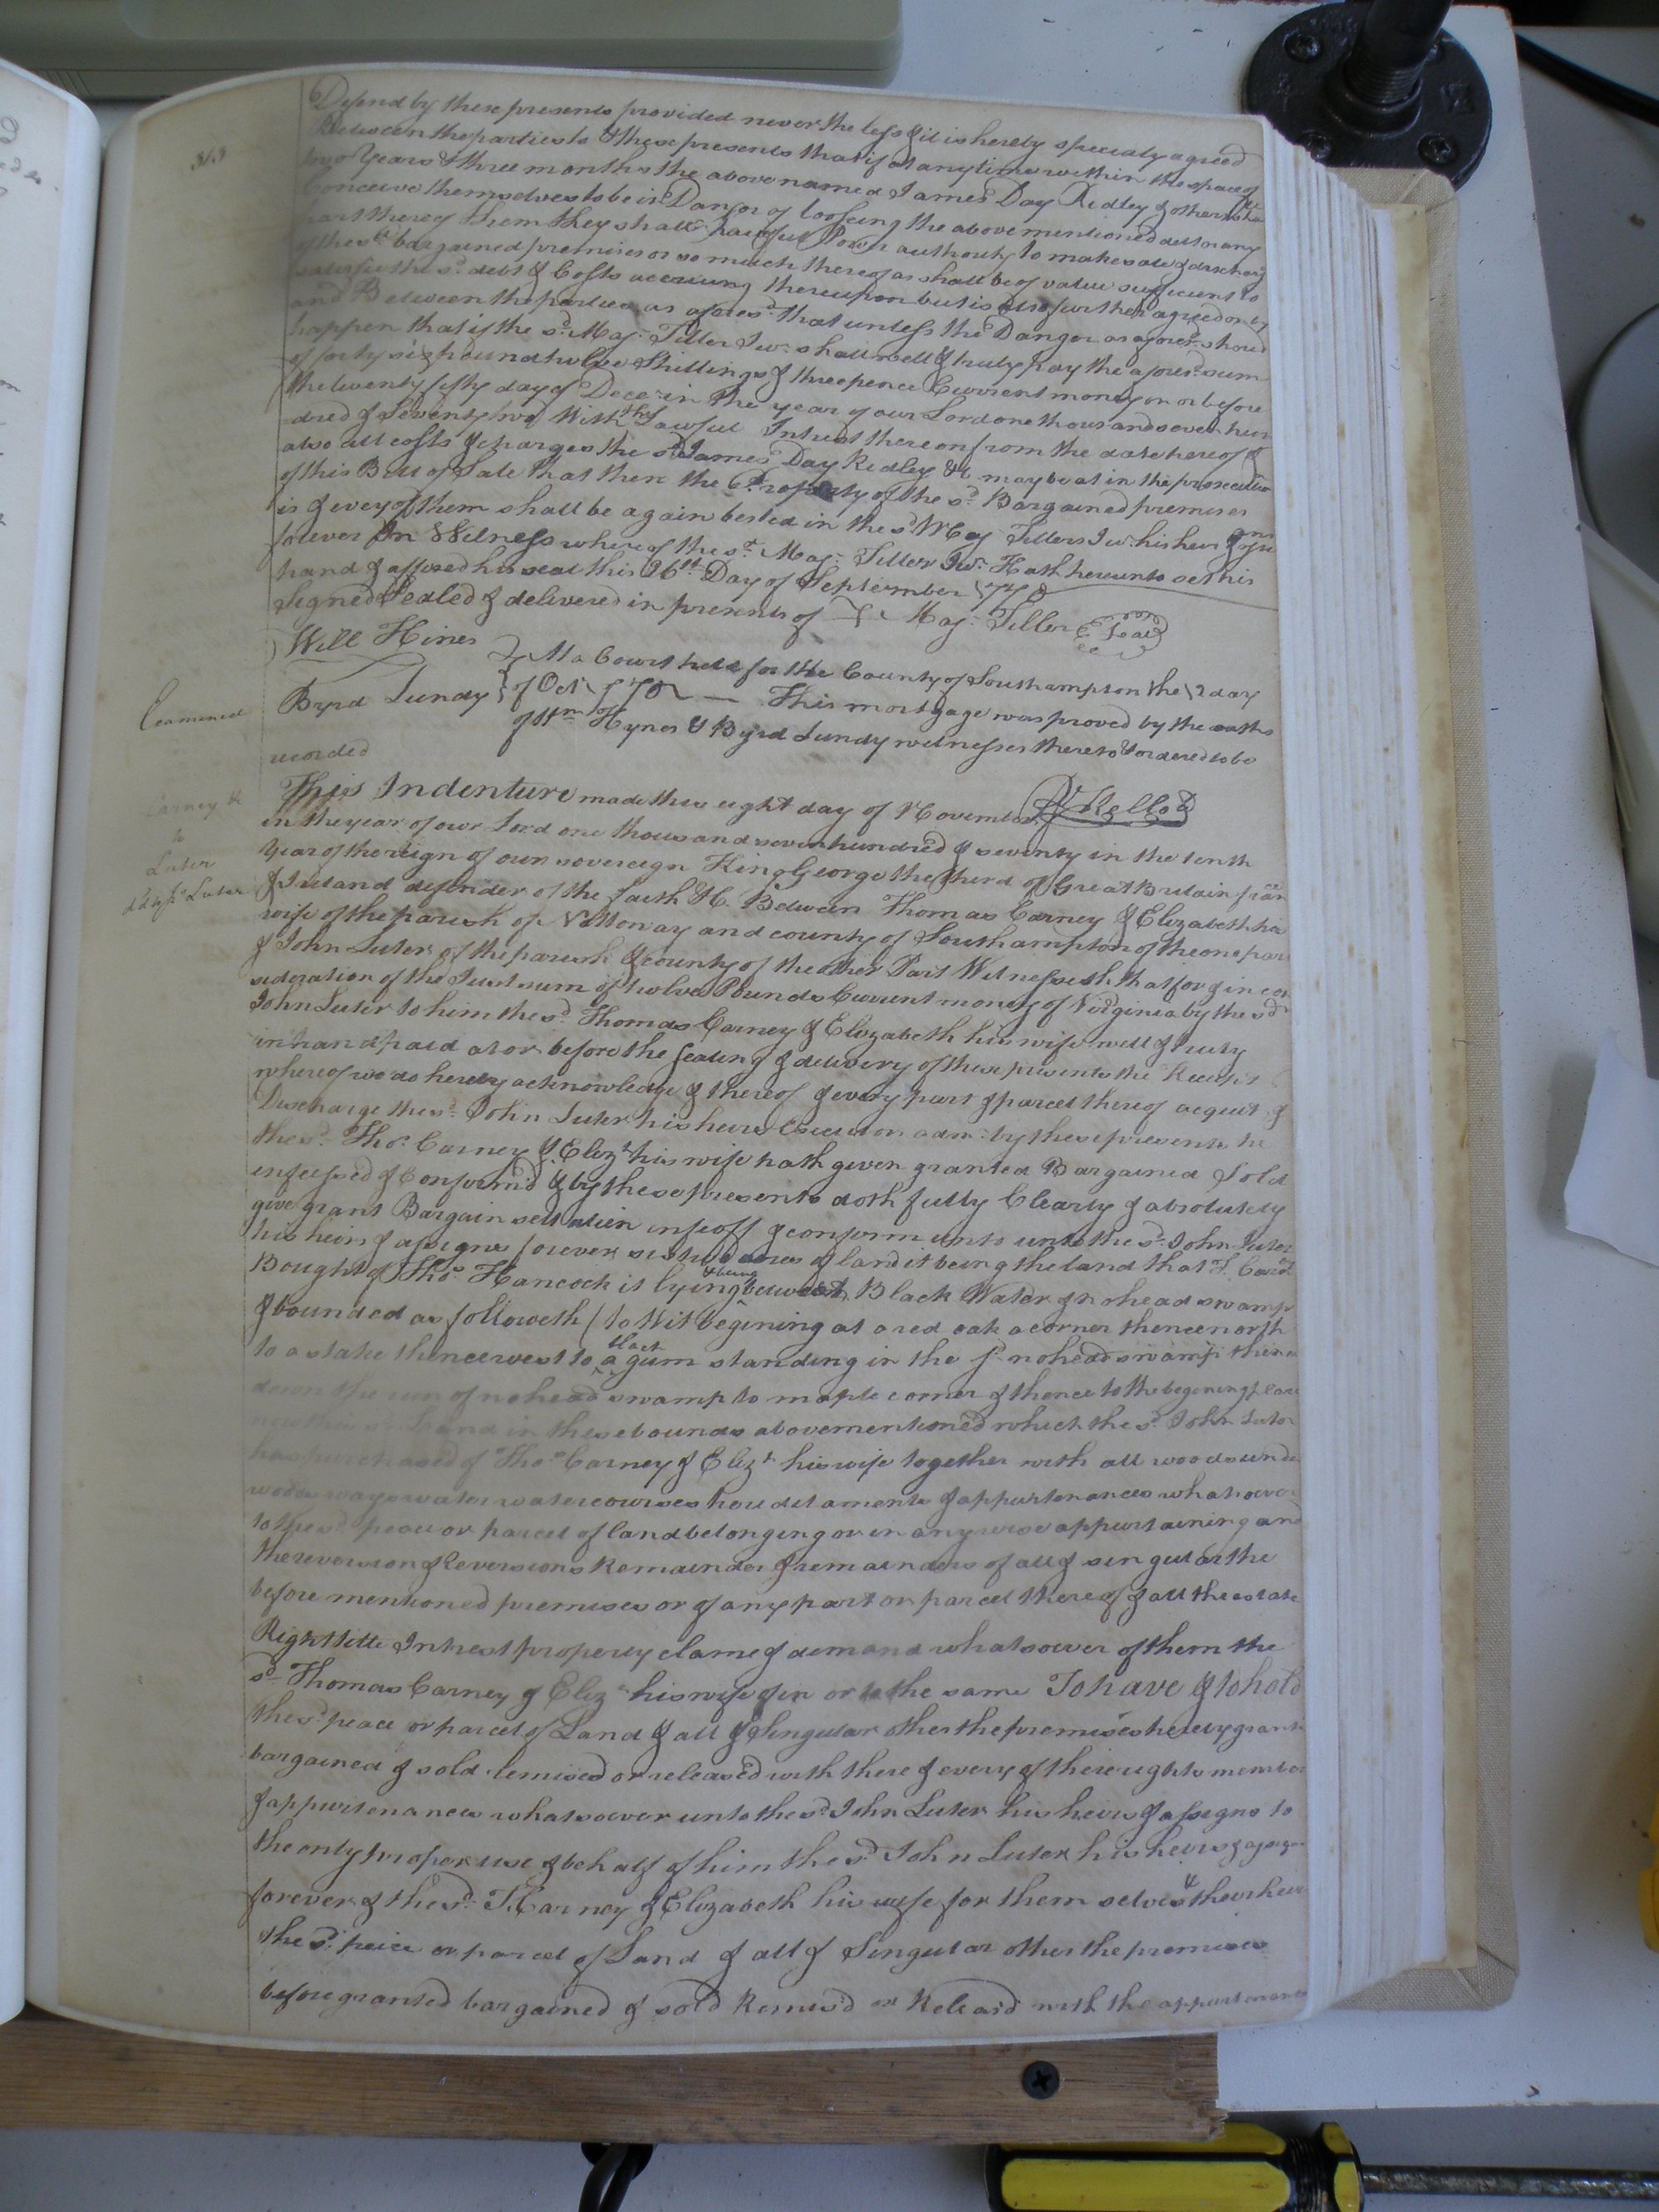 313
Defend by these presents provided never the less & it is hereby specialy agreed
Between the parties to these presents that if at any time within the space of
two Years & three months the above named James Day Ridley & others
Conceive themselves to be in Danger of loosing the above mentioned debt or any
part thereof them they shall have full Power authority to make sale & discharg
of the sd. bargained premises or so much thereof as shall be of value sufficient to
satisfie the sd. debt & Costs accruing thereupon but is also further agreed on by
and Between the parties as aforesd. that unless the Danger as aforesd. should
happen that if the sd. Maj. Tiller Jur. shall well & truly Pay the aforesd. sum
of forty six pound twelve Shillings & three pence Current money on or before
the twenty fifty day of Decer. in the year of our Lord one thousand seven hun
dred & Seventy two With the Lawful Intrest there on from the date hereof &
also all costs & charges the sd. James Day Ridley &c may be at in the prosecution
of this Bill of Sale that then the Property of the sd. Bargained premises
is & every of them shall be again bested in the sd. Maj. Tillers Jur. his heirs
forever In Witness whereof the sd. Maj. Tiller Jur. Hath hereunto set his
hand & affixed his seal this 26th Day of September 1770
Signed Sealed & delivered in presents of Maj. Tiller Seal
Will Hines
At a Court held for the County of Southampton the 12 day
Byrd Lundy of Oct 1770 This mortgage was proved by the oaths
Examined
of Wm Hynes & Byrd Lundy witnesses thereto & ordered to be
recorded
Kello
This Indenture made this eight day of November
in the year of our Lord one thousand seven hundred & seventy in the tenth
Carney &c
to
Luter
Year of the reign of our sovereign King George the third of Great Britain fran
& Ireland defender of the faith &c. Between Thomas Carney & Elizabeth his
wife of the parish of Nottoway and county of Southampton of the one part
& John Luter of the parish & county of the other Part Witnesseth that for & in con
sideration of the Just sum of twelve Pounds Current money of Virginia by the sd.
John Luter to him the sd. Thomas Carney & Elizabeth his wife well & truly
in hand paid at or before the sealing & delivery of these presents the Receipt
whereof we do hereby acknowledge & thereof & every part & parcel thereof acquit &
Discharge the sd. John Luter his heirs Executors adm. by these presents he
the sd. Thos. Carney & Elizt. his wife hath given granted Bargained Sold
infeoffed & Confirm'd & by these presents doth fully Clearly & absolutely
give grant Bargain sell alien infeoff & confirm unto unto the sd. John Luter
his heirs & assigns forever acres of land it being the land that T. Carn
Bought of Thos. Hancock it lying & being between Black Water & nohead swamp
& bounded as followeth (to Wit begining at a red oak a corner thence north
to a stake thence west to a black gum standing in the sd. nohead swamp thence
down the run of nohead swamp to maple corner & thence to the begining place
now this sd. Land in these bounds above mentioned which the sd. John Luter
has purchased of Thos. Carney & Elizt. his wife together with all woods under
woods ways water watercourses hereditaments & appurtenances whatsoever
to the sd. peace or parcel of land belonging or in any wise appurtaining and
the reversion & Reversions Remainder & remainders of all & singular the
before mentioned premises or of any part or parcel thereof & all the estate
Right title Intrest property clame & demand whatsoever of them the
sd. Thomas Carney & Elizt. his wife of in or to the same To have & to hold
the sd. peace or parcel of Land & all & Singular other the premises hereby grant
bargained & sold remised or releas'd with there & every of there rights member
& appurtenances whatsoever unto the sd. John Luter his heirs & assigns to
the only proper use & behalf of him the sd. John Luter his heirs & assigns
forever & the sd. T. Carney & Elizabeth his wife for them selves & their heirs
the sd. peice or parcel of Land & all & Singular other the premises
before granted bargained & sold Remis'd or Releas'd with the appurtenances